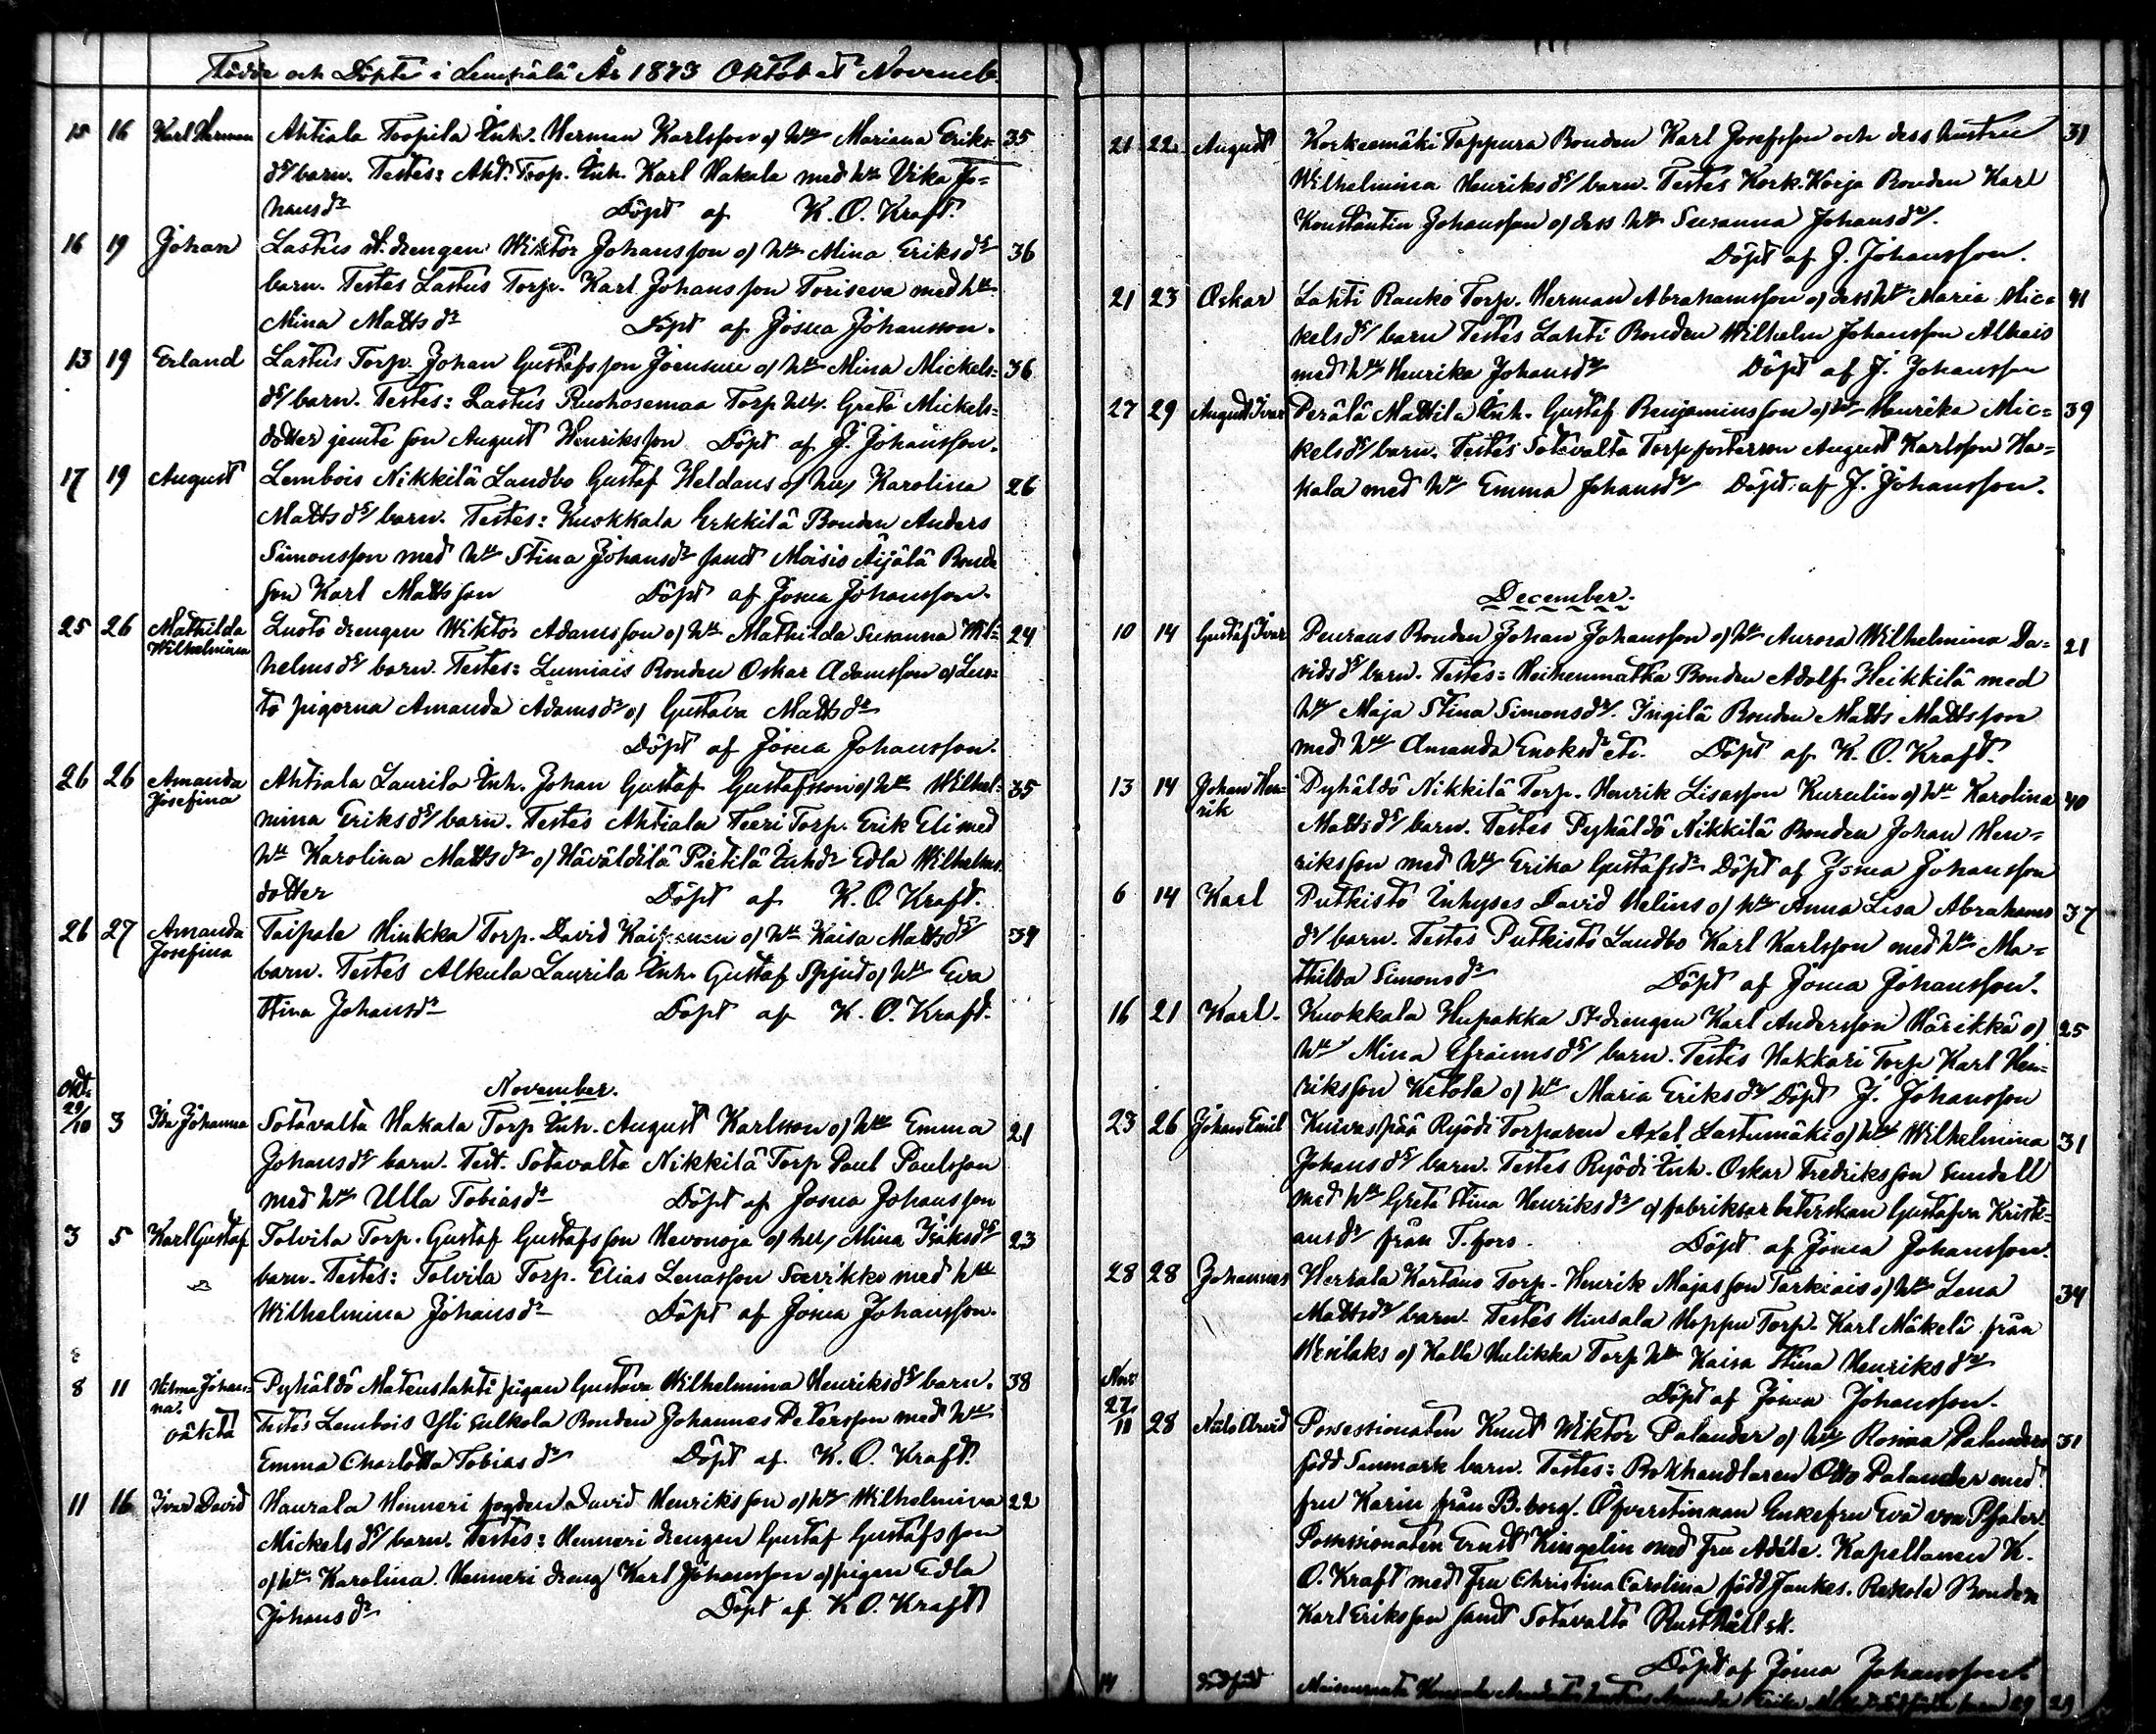 Födde och Döpte i Lempälä År 1873 Oktob et Novemb.
15 16 Karl Herman Ahtiala Toopila Inh. Herman Karlsson o/ hu Mariana Eriks= 35
ds/ barn. Testes: Aht. Toop. Inh. Karl Hakala med hu Vika Jo=
hansdr Döpt af K. O. Kraft.
16 19 Johan Lastus st. drengen Wiktor Johansson o/ hu Mina Eriksds 36
barn. Testes Lastus Torp. Karl Johansson Toriseva med hu
Mina Mattsdr Döpt af Josua Johansson.
13 19 Erland Lastus Torp. Johan Gustafsson Joensuu o/ hu Mina Mickels= 36
ds/ barn. Testes: Lastus Ruohosemaa Torp hu Greta Mickels=
dotter jemte son August Henriksson Döpt af J. Johansson.
17 19 August Lembois Nikkilä Landbo Gustaf Heldans o/ hu Karolina 26
Mattsds/ barn. Testes: Kuokkala Erkkilä Bonden Anders
Simonsson med hu Stina Johansdr samt Moisio Äijälä Bonde
son Karl Mattsson Döpt af Josua Johansson.
25 26 Mathilda Wilhelmina Luoto drengen Wiktor Adamsson o/ hu Mathilda Susanna Wil= 24
helmsds/ barn. Testes: Lumiais Bonden Oskar Adamsson o/ Luo=
to pigorna Amanda Adamsdr o/ Gustava Mattsdr
Döpt af Josua Johansson.
26 26 Amanda Josefina Ahtiala Laurila Inh. Johan Gustaf Gustafsson o/ hu Wilhel= 35
mina Eriksds/ barn. Testes Ahtiala Teeri Torp. Erik Eli med
hu Karolina Mattsdr o/ Häväldilä Pietilä Inhdr Edla Wilhelms
dotter Döpt af K. O. Kraft.
26 27 Amanda Josefina Taipale Hinkka Torp. David o/ hu Kaisa Mattsds/ 39
barn. Testes Alkula Laurila Inh. Gustaf Spjut o/ hu Eva
Stina Johansdr Döpt af K. O. Kraft.
November.
Okt. 29/10 3 Ida Johanna Sotavalta Hakala Torp Inh. August Karlsson o/ hu Emma 21
Johansds barn. Test. Sotavalta Nikkilä Torp Paul Paulsson
med hu Ulla Tobiasdr Döpt af Josua Johansson
3 5 Karl Gustaf Tolvila Torp. Gustaf Gustafsson Hevonoja o/ hu Mina Isaksds/ 23
barn. Testes: Tolvila Torp. Elias Lenasson Saarikko med hu
Wilhelmina Johansdr Döpt af Josua Johansson.
8 11 Hilma Johanna. oäkta Pyhäldö Mateuslahti pigan Gustava Wilhelmina Henriksds/ barn. 38
Testes Lembois Yli Sulkola Bonden Johannes Petersson med hu
Emma Charlotta Tobiasdr Döpt af K. O. Kraft.
11 16 Ivar David Haurala Henneri fogden David Henriksson o/ hu Wilhelmina 22
Mickelsds/ barn. Testes: Henneri drengen Gustaf Gustafsson
o/ hu Karolina. Henneri dreng Karl Johansson o/ pigan Edla
Johansdr Döpt af K. O. Kraft
21 22 August Korkeemäki Toppura Bonden Karl Josefsson och dess hustru 31
Wilhelmina Henriksds/ barn. Testes Kork. Korja Bonden Karl
Konstantin Johansson o/ dess hu Susanna Johansdr.
Döpt af J. Johansson.
21 23 Oskar Lahti Rauko Torp. Herman Abrahamsson o/ dess hu Maria Mic= 41
kelsds/ barn Testes Lahti Bonden Wilhelm Johansson Alkais
med hu Henrika Johansdr Döpt af J. Johansson
27 29 August Ivar Perälä Mattila Inh. Gustaf Benjaminsson o/ hu Henrika Mic= 39
kelsds/ barn. Testes Sotavalta Torp fosterson August Karlsson Ha=
kala med hu Emma Johansdr Döpt af J. Johansson.
December.
10 14 Gustaf Ivar Peuraus Bonden Johan Johansson o/ hu Aurora Wilhelmina Da= 21
vidsds/ barn. Testes: Heikenmatka Bonden Adolf Heikkilä med
hu Maja Stina Simonsdr. Ingilä Bonden Matts Mattsson
med hu Amanda Enoksdr etc. Döpt af K. O. Kraft.
13 14 Johan Henrik Pyhäldö Nikkilä Torp. Henrik Lisasson Kurulin o/ hu Karolina 40
Mattsds/ barn. Testes Pyhäldö Nikkilä Bonden Johan Hen=
riksson med hu Erika Gustafsdr Döpt af Josua Johansson
6 14 Karl Putkisto Inhyses David Helins o/ hu Anna Lisa Abrahams 37
ds/ barn. Testes Putkisto Landbo Karl Karlsson med hu Ma=
thilda Simonsdr Döpt af Josua Johansson.
16 21 Karl. Kuokkala Hupakka St. drengen Karl Andersson Härikkä o/ 25
hu Mina Efraimsds/ barn. Testes Hakkari Torp Karl Hen=
riksson Ketola o/ hu Maria Eriksdr Döpt J. Johansson
23 26 Johan Emil Kuivaspää Ryödi Torparen Axel Lastumäki o/ hu Wilhelmina 31
Johansds/ barn. Testes Ryödi Inh. Oskar Fredriksson Sundell
med hu Greta Stina Henriksdr o/ fabriksarbeterskan Gustafva Kristi=
ansdr från T.fors. Döpt af Josua Johansson.
28 28 Johannes Herrala Kartano Torp. Henrik Majasson Tarkiais o/ hu Lena 34
Mattsds/ barn. Testes Hinsala Hoppu Torp. Karl Mäkelä från
Wesilaks o/ Kalla Hulikka Torp hu Kaisa Stina Henriksdr
Döpt af Josua Johansson.
Nov. 27/11 28 Niilo Arvid Possessionaten Knut Wiktor Palander o/ hu Rosina Palander 31
född Sanmark barn. Testes: Bokhandlaren Otto Palander med
fru Karin från B.borg. Öfverstinnan Enkefru Eva von Pfaler.
Possessionaten Ernst Kingelin med Fru Adéle. Kapellanen K.
O. Kraft med Fru Christina Carolina född Jankes. Rekola Bonden
Karl Eriksson samt Sotavalta Rusthåll
Döpt af Josua Johansson.
14 dödfödd 29